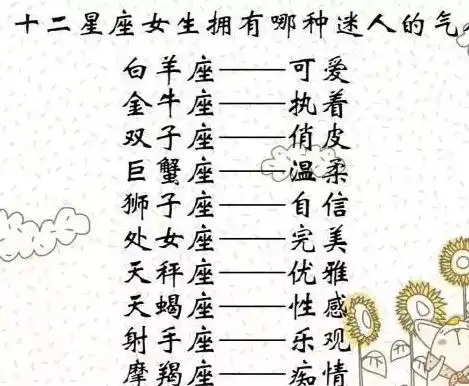 十二星座女生拥有哪种迷人的气
白羊座——可爱
金牛座——执着
双子座——俏皮
巨蟹座——温柔
狮子座——自信
处女座——完美
天秤座——优雅
天蝎座——性感
射手座——乐观
摩羯座——痴情